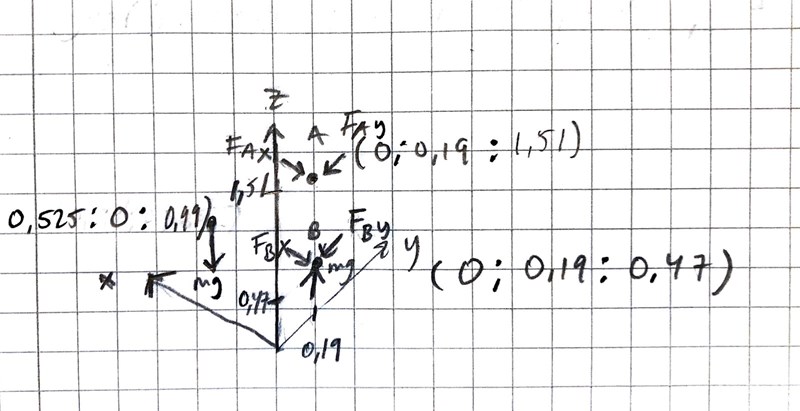 Z
A FAy
FAx (0; 0,19 : 1,51)
1,51
0,525 : 0 : 0,99)
B FBy
FBx y
mg mg (0; 0,19 : 0,47)
x
0,47
0,19